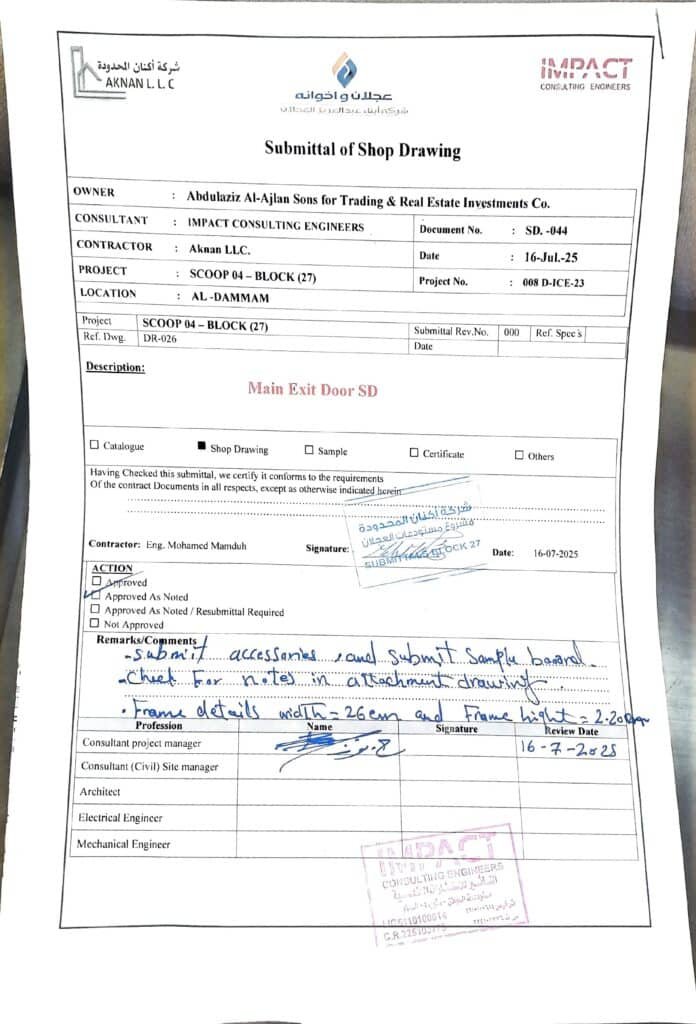 شركة أكنان المحدودة
AKNAN L.L.C
عجلان و اخوانه
شركة أبناء عبدالعزيز العجلان
IMPACT
CONSULTING ENGINEERS
Submittal of Shop Drawing
OWNER : Abdulaziz Al-Ajlan Sons for Trading & Real Estate Investments Co.
CONSULTANT : IMPACT CONSULTING ENGINEERS
Document No. : SD. -044
CONTRACTOR : Aknan LLC.
Date : 16-Jul.-25
PROJECT : SCOOP 04 – BLOCK (27)
Project No. : 008 D-ICE-23
LOCATION : AL -DAMMAM
Project SCOOP 04 – BLOCK (27)
Submittal Rev.No. 000 Ref. Spec's
Ref. Dwg. DR-026
Date
Description:
Main Exit Door SD
☐ Catalogue ■ Shop Drawing ☐ Sample ☐ Certificate ☐ Others
Having Checked this submittal, we certify it conforms to the requirements
Of the contract Documents in all respects, except as otherwise indicated herein
شركة أكنان المحدودة
مشروع مستودعات العجلان
SUBMITTALS BLOCK 27
Contractor: Eng. Mohamed Mamduh Signature: Date: 16-07-2025
ACTION
☐ Approved
☑ Approved As Noted
☐ Approved As Noted / Resubmittal Required
☐ Not Approved
Remarks/Comments
- submit accessories , and submit sample board.
- Check For notes in attachment drawing.
. Frame details width = 26 cm and Frame hight = 2.20
Profession Name Signature Review Date
Consultant project manager 16-7-2025
Consultant (Civil) Site manager
Architect
Electrical Engineer
Mechanical Engineer
IMPACT
CONSULTING ENGINEERS